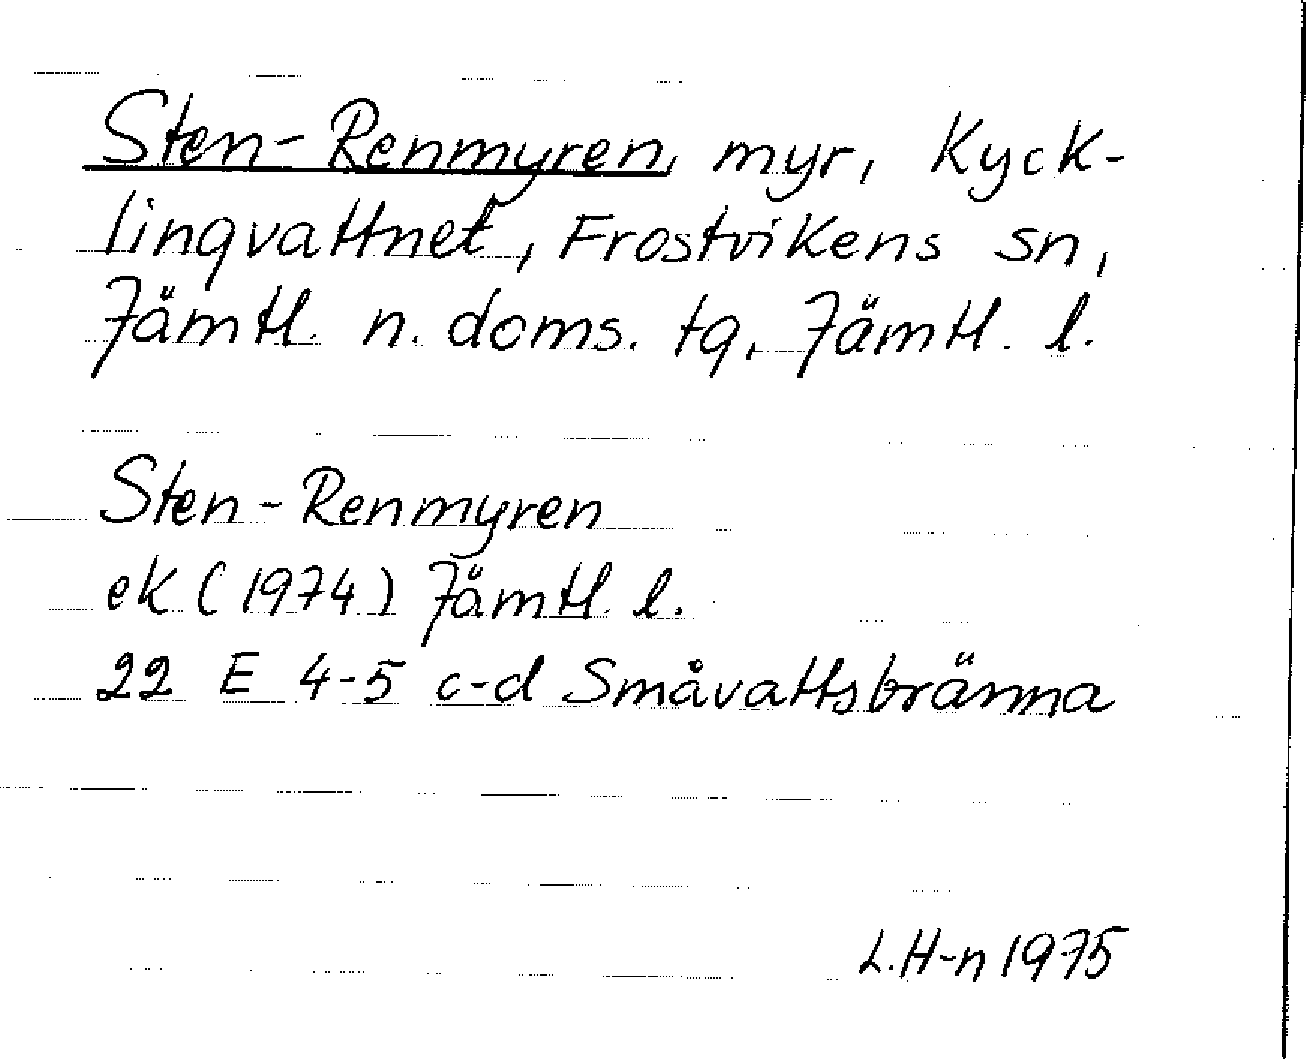 Sten-Renmyren, myr, Kyck-
lingvattnet, Frostvikens sn,
Jämtl. n. doms. tg, Jämtl. l.
Sten-Renmyren
ek (1974) Jämtl. l.
22 E 4-5 c-d Småvattsbränna
L.H-n 1975